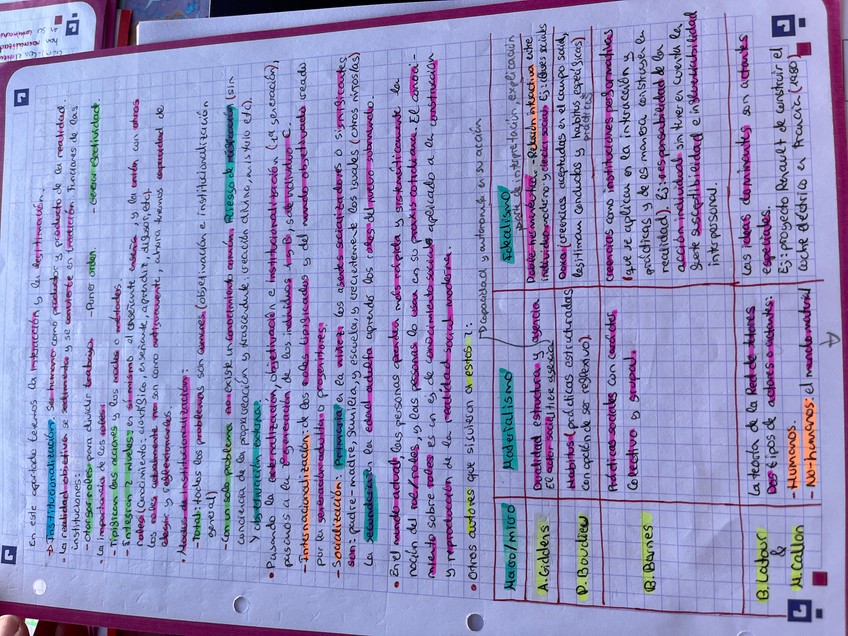 En este apartado leemos la interacción y la legitimación.
Institucionalización: Ser humano como productor y producto de la realidad.
- La realidad objetiva se sedimenta y se convierte en tradición. Funciones de las
instituciones:
- otorgar roles para dividir trabajos. - Poner orden. - Generar efectividad.
- La importancia de los roles:
- Tipifican las acciones y los modos o métodos
- Integran 2 niveles: en sí mismo, al ejecutante enseña, y la unión con otros
roles (Conocimiento: científico, enseñante, aprendiz, difusor, etc).
Los roles actualmente no son como antiguamente, ahora tenemos capacidad de
elegir y
• Modos de institucionalización:
- Total: todos los problemas son comunes (objetivación e institucionalización
general)
- Con un solo problema no existe un conocimiento común. Riesgo de reificación (sin
conciencia de la propia creación y trascendente: creación divina, místico etc).
y
• Pasando la externalización, objetivación e institucionalización (1ª generación),
pasamos a la 2ª generación de los individuos A y B, sale individuo C.
- Internacionalización: de los roles tipificados y del mundo objetivado creado
por la generación adulta o progenitores.
- Socialización: Primaria en la niñez: los agentes socializadores o significantes
son: padre-madre, familia, y escuela, y crecientemente los iguales (otros niños/as)
La secundaria en la edad adulta aprende los roles del nuevo submundo.
• En el mundo actual, las personas aprenden más rápida y sistemáticamente la
noción del rol/roles, y las personas lo usan en su praxis cotidiana. El conoci-
miento sobre roles es un es de conocimiento social aplicado a la construcción
y reproducción de la realidad social moderna.
• Otros autores que siguieron a estos 2:
capacidad y autonomía en su acción
Macro/micro
Materialismo
Idealismo
parte de interpretación, explicación
A. Giddens
Dualidad estructura y agencia
El actor social tiene agencia
Doble hermenéutica. - Relación interactiva entre
individuo moderno y ciencia social. Ej: clases sociales
P. Bourdieu
Habitus (prácticas estructuradas
con opción de ser reflexivo).
Doxa (creencias aceptadas en el campo social,
legitiman conductas y hábitos específicos)
prácticas
B. Barnes
Prácticas sociales con carácter
colectivo y general.
Creencias como instituciones performativas
(que se aplican en la interacción y
prácticas y de esa manera construyen la
realidad). Ej: responsabilidad de la
acción individual sin tener en cuenta la
fuerte susceptibilidad e influenciabilidad
interpersonal.
B. Latour
&
M. Callon
La teoría de la Red de Actores
Dos tipos de actores o actantes:
- Humanos.
- No-humanos: el mundo material
Las ideas dominantes son actantes
especiales.
Ej: proyecto Renault de construir el
coche eléctrico en Francia (1980)